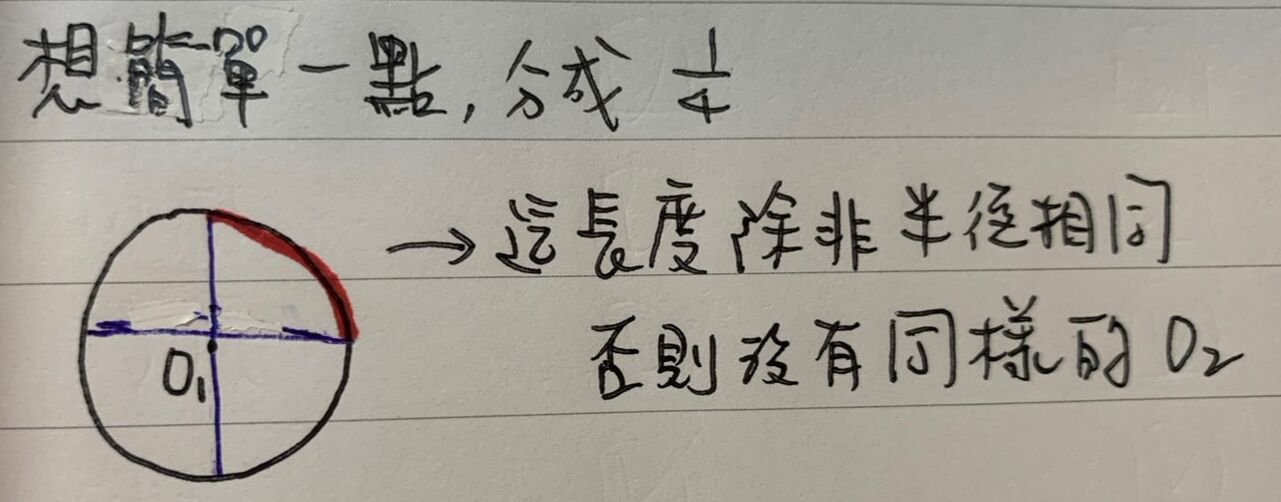 想簡單一點, 分成 1/4
→這長度除非半徑相同
否則沒有同樣的 O₂
O₁